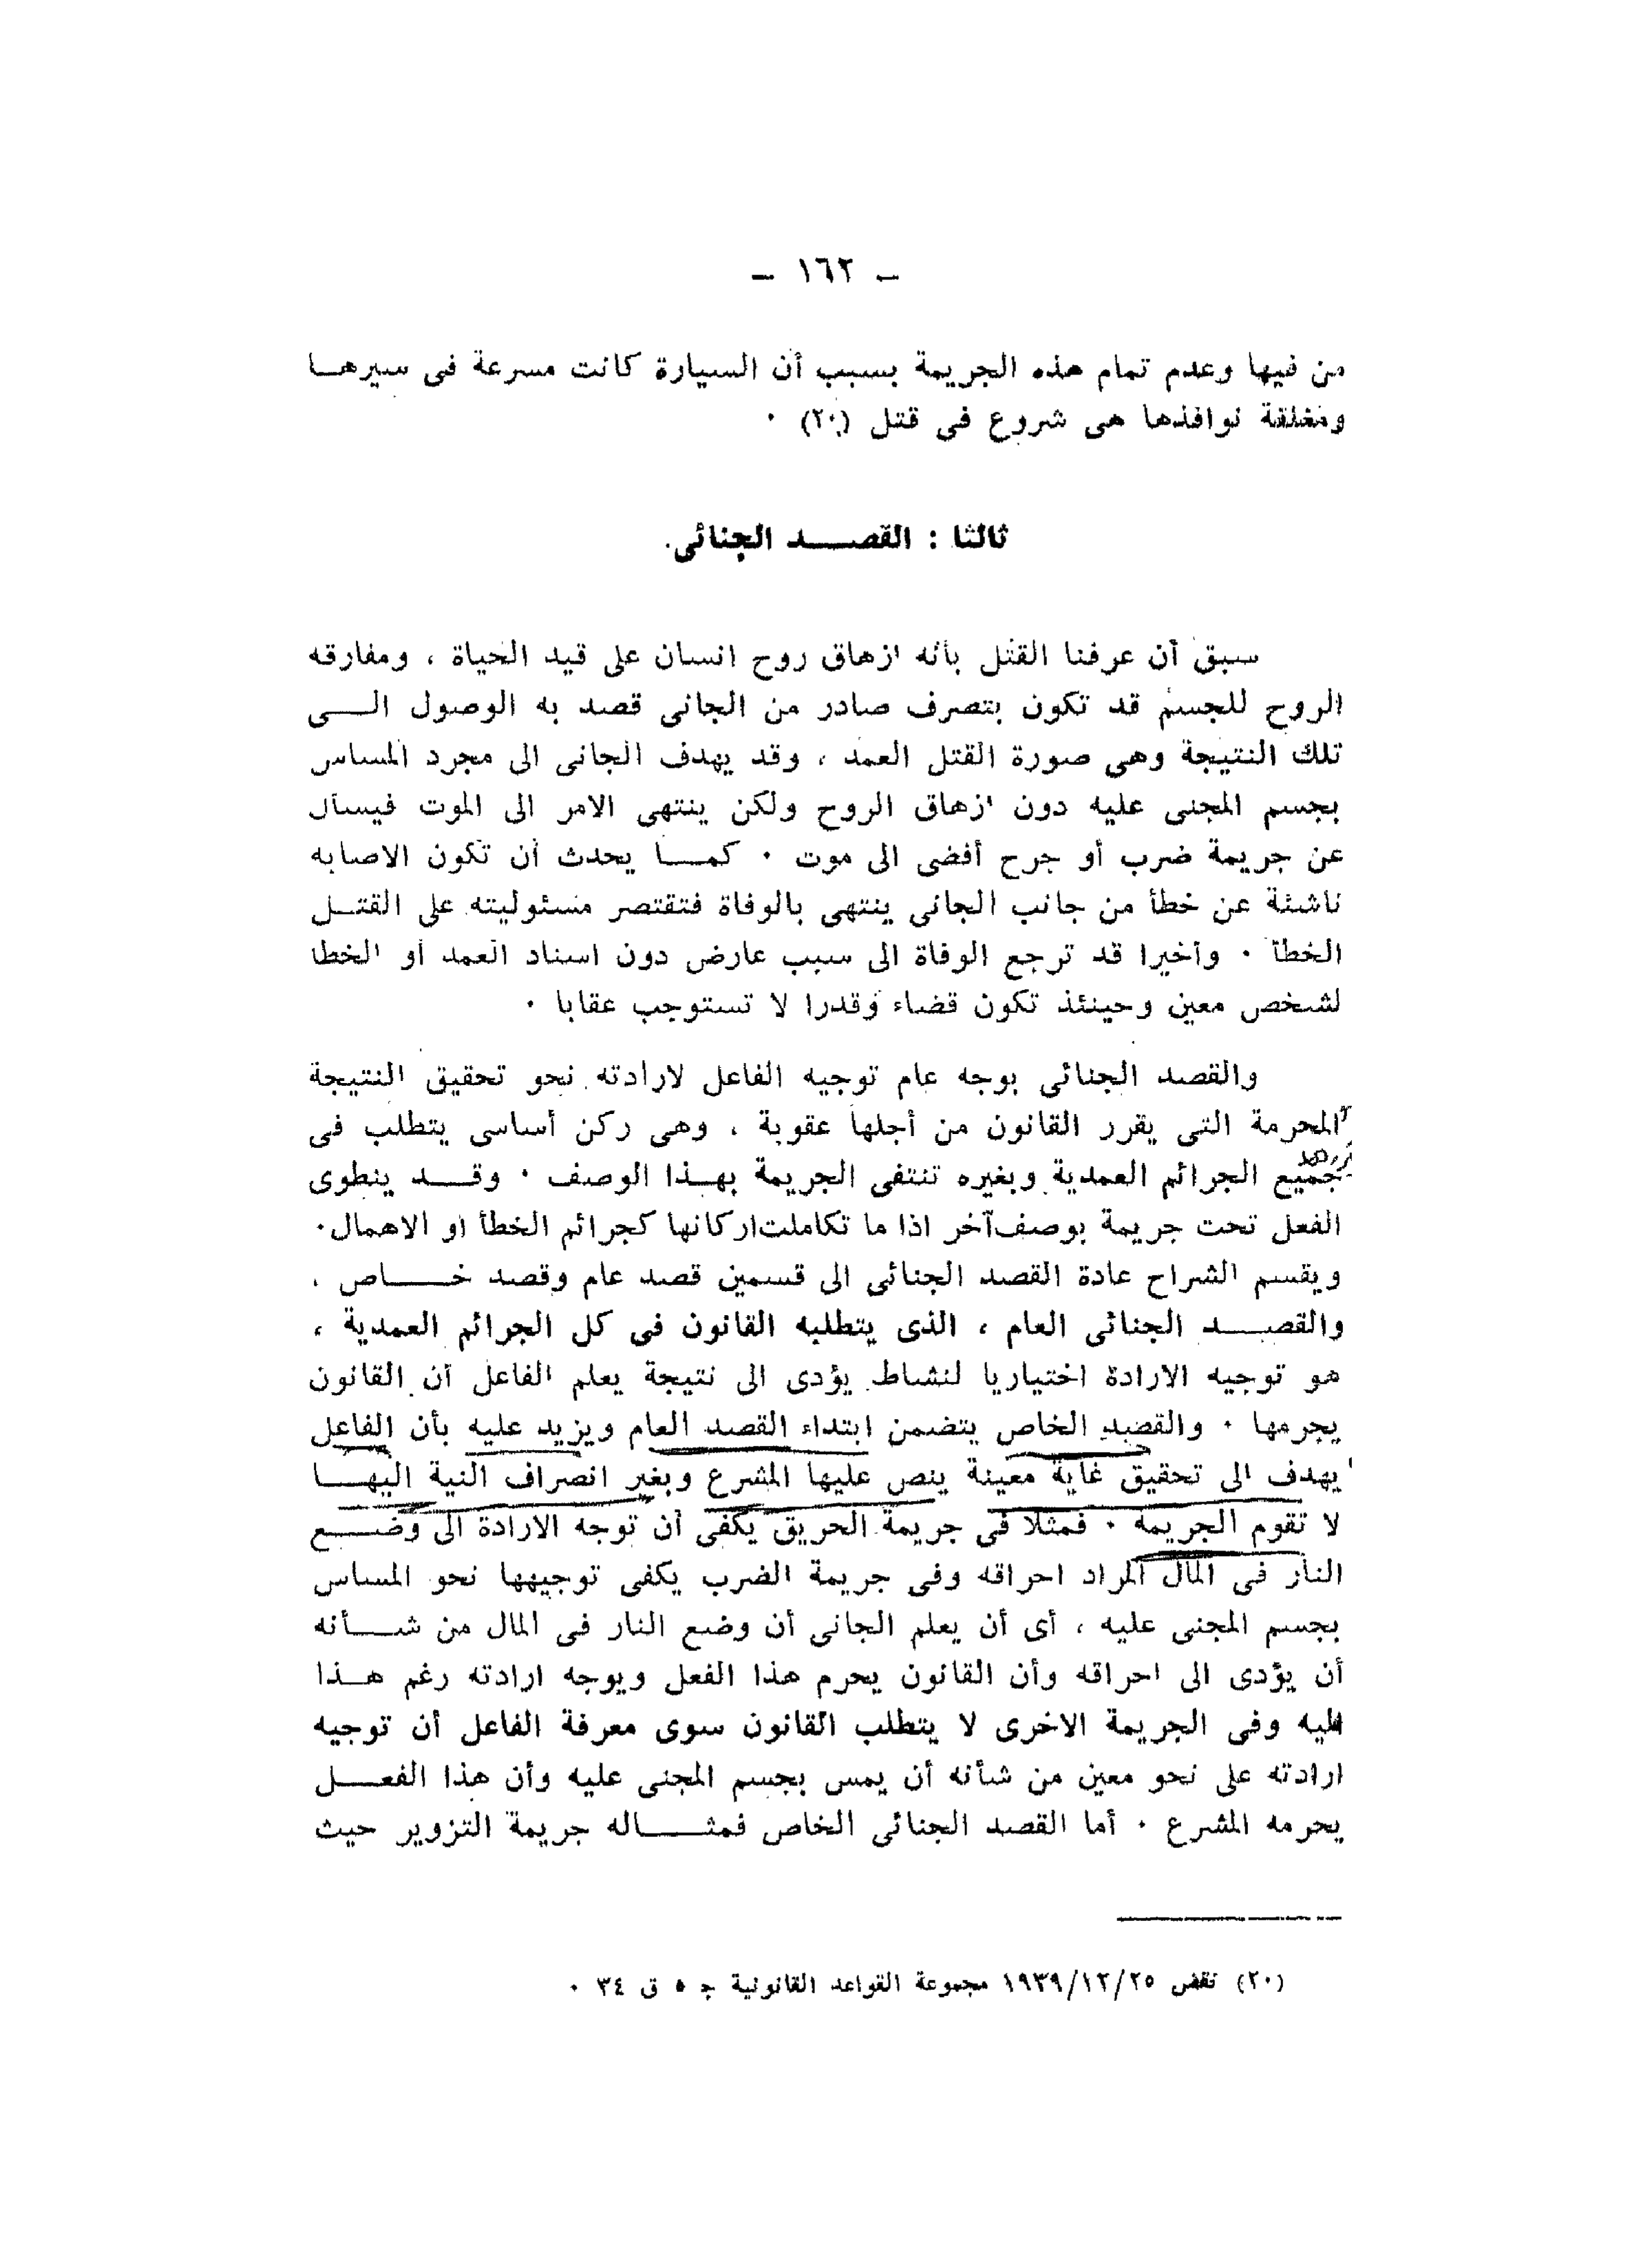 — ١٦٢ —
من فيها وعدم تمام هذه الجريمة بسبب أن السيارة كانت مسرعة فى سيرها
ومغلقة نوافذها هى شروع فى قتل (٢٠) ٠
ثالثا : القصد الجنائى
سبق أن عرفنا القتل بأنه ازهاق روح انسان على قيد الحياة ، ومفارقه
الروح للجسم قد تكون بتصرف صادر من الجانى قصد به الوصول الى
تلك النتيجة وهى صورة القتل العمد ، وقد يهدف الجانى الى مجرد المساس
بجسم المجنى عليه دون ازهاق الروح ولكن ينتهى الامر الى الموت فيسأل
عن جريمة ضرب أو جرح أفضى الى موت ٠ كما يحدث أن تكون الاصابه
ناشئة عن خطأ من جانب الجانى ينتهى بالوفاة فتقتصر مسئوليته على القتل
الخطأ ٠ وأخيرا قد ترجع الوفاة الى سبب عارض دون اسناد العمد أو الخطا
لشخص معين وحينئذ تكون قضاء وقدرا لا تستوجب عقابا ٠
والقصد الجنائى بوجه عام توجيه الفاعل لارادته نحو تحقيق النتيجة
المحرمة التى يقرر القانون من أجلها عقوبة ، وهى ركن أساسى يتطلب فى
جميع الجرائم العمدية وبغيره تنتفى الجريمة بهذا الوصف ٠ وقد ينطوى
الفعل تحت جريمة بوصف آخر اذا ما تكاملت اركانها كجرائم الخطأ او الاهمال ٠
ويقسم الشراح عادة القصد الجنائى الى قسمين قصد عام وقصد خاص ،
والقصد الجنائى العام ، الذى يتطلبه القانون فى كل الجرائم العمدية ،
هو توجيه الارادة اختياريا لنشاط يؤدى الى نتيجة يعلم الفاعل أن القانون
يجرمها ٠ والقصد الخاص يتضمن ابتداء القصد العام ويزيد عليه بأن الفاعل
يهدف الى تحقيق غاية معينة ينص عليها المشرع وبغير انصراف النية اليها
لا تقوم الجريمة ٠ فمثلا فى جريمة الحريق يكفى أن توجه الارادة الى وضع
النار فى المال المراد احراقه وفى جريمة الضرب يكفى توجيهها نحو المساس
بجسم المجنى عليه ، أى أن يعلم الجانى أن وضع النار فى المال من شأنه
أن يؤدى الى احراقه وأن القانون يحرم هذا الفعل ويوجه ارادته رغم هذا
اليه وفى الجريمة الاخرى لا يتطلب القانون سوى معرفة الفاعل أن توجيه
ارادته على نحو معين من شأنه أن يمس بجسم المجنى عليه وأن هذا الفعل
يحرمه المشرع ٠ أما القصد الجنائى الخاص فمثاله جريمة التزوير حيث
(٢٠) نقض ١٩٣٩/١٢/٢٥ مجموعة القواعد القانونية ج ٥ ق ٣٤ ٠